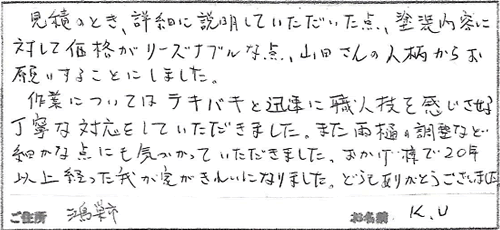 見積のとき、詳細に説明していただいた点、塗装内容に
対して価格がリーズナブルな点、山田さんの人柄からお
願いすることにしました。
作業についてはテキパキと迅速に職人技を感じさせる
丁寧な対応をしていただきました。また雨樋の調整など
細かな点にも気づかっていただきました。おかげ様で20年
以上経った我が家がきれいになりました。どうもありがとうございました
ご住所 鴻巣市 お名前 K.U